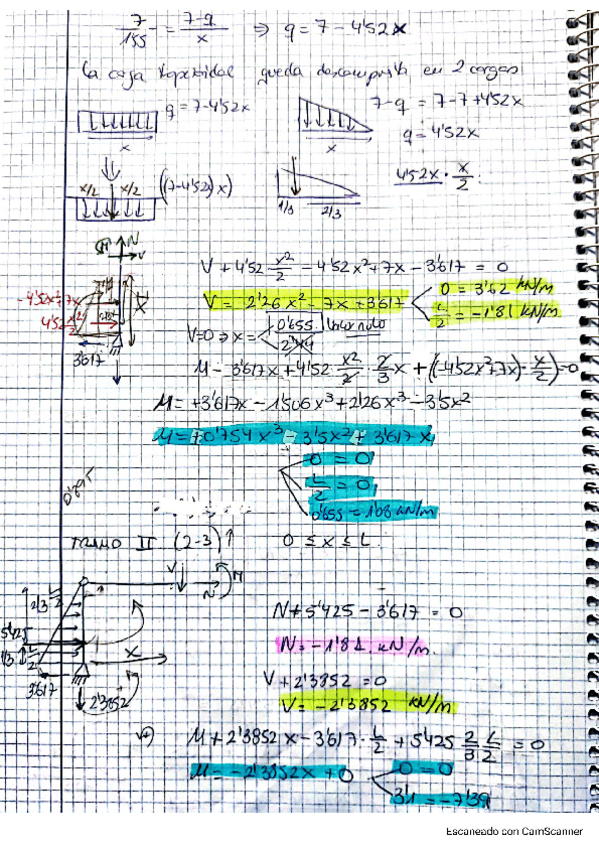 7/1'55 = 7-q/x ⇒ q = 7 - 4'52x
la carga trapezoidal queda descompuesta en 2 cargas
q = 7-4'52x
x
7-q = 7-7+4'52x
q = 4'52x
x
x/2 x/2 ((7-4'52x)x)
1/3 2/3
4'52x · x/2
N
V
-4'52x²+7x
4'52 x²/2
x
3'617
V + 4'52 · x²/2 - 4'52x² + 7x - 3'617 = 0
V = 2'26x² - 7x + 3'617
0 = 3'62 kN/m
L/2 = -1'81 kN/m
V=0 ⇒ x =
0'655
2'44
M - 3'617x + 4'52 · x²/2 · 2/3 x + ((-4'52x²+7x) · x/2) = 0
M = +3'617x - 1'506x³ + 2'26x³ - 3'5x²
M = +0'754x³ - 3'5x² + 3'617x
0 = 0
L/2 = 0
0'655 = 1'08 kN/m
0'895
TRAMO II (2-3) 0 ≤ x ≤ L
V
N
M
2/3 L/2
5'425
1/3 L/2
x
3'617
2'3852
N + 5'425 - 3'617 = 0
N = -1'81 kN/m
V + 2'3852 = 0
V = -2'3852 kN/m
M + 2'3852x - 3'617 · L/2 + 5'425 2/3 L/2 = 0
M = -2'3852x + 0
0 = 0
3'1 = -7'39
Escaneado con CamScanner